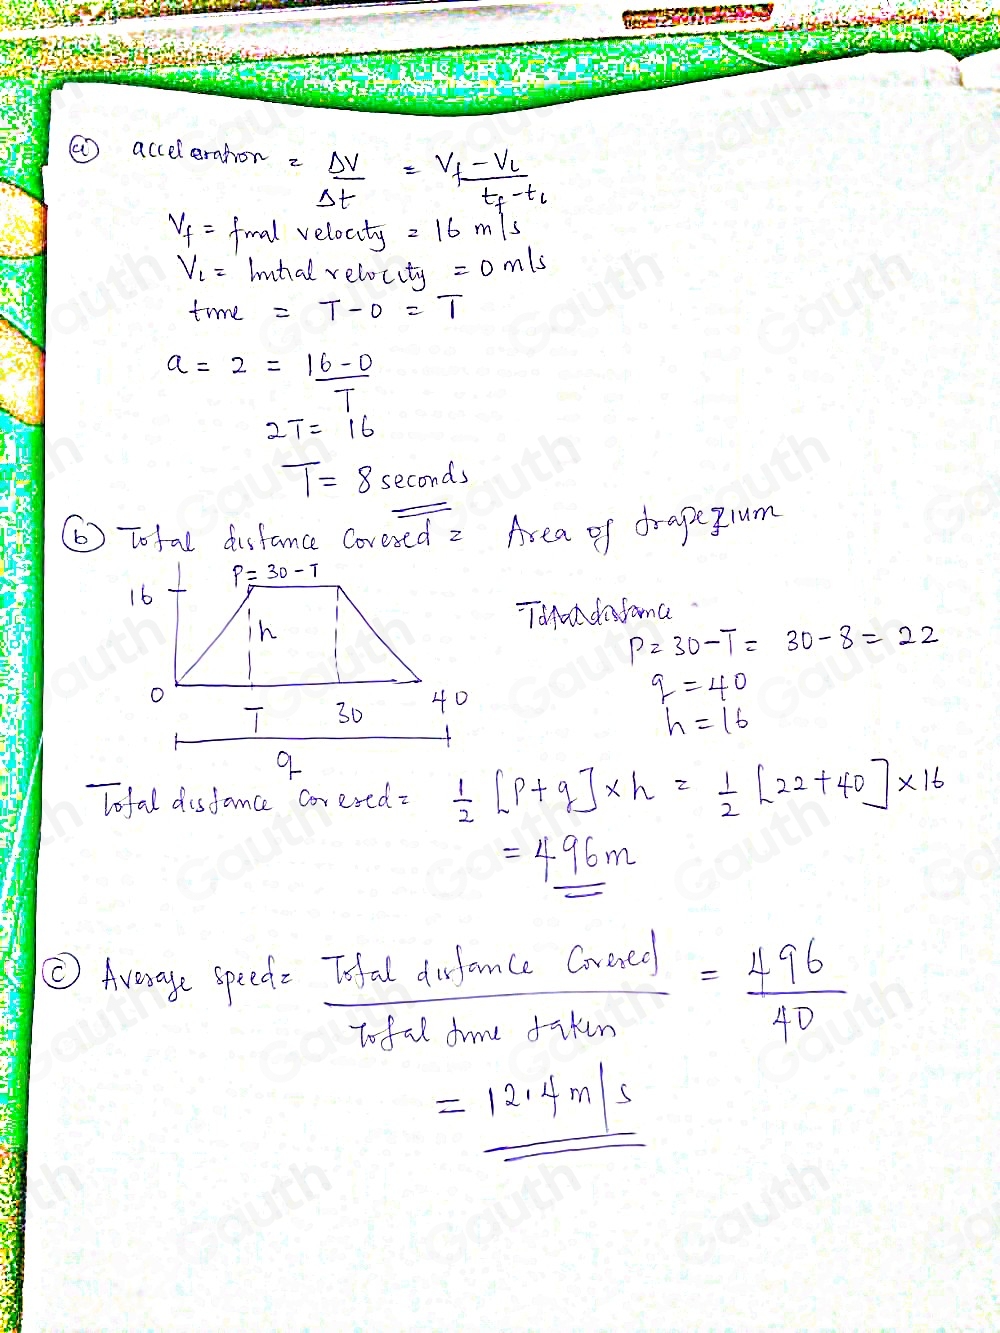 (a) acceleration = ΔV/Δt = (Vf - Vi)/(tf - ti)
Vf = final velocity = 16 m/s
Vi = Initial velocity = 0 m/s
time = T - 0 = T
a = 2 = (16 - 0)/T
2T = 16
T = 8 seconds
(b) Total distance covered = Area of trapezium
P = 30 - T
16
h
0
T
30
40
q
P = 30 - T = 30 - 8 = 22
q = 40
h = 16
Total distance covered = 1/2 [P + q] × h = 1/2 [22 + 40] × 16
= 496m
(c) Average speed = Total distance Covered / Total time taken = 496/40
= 12.4 m/s